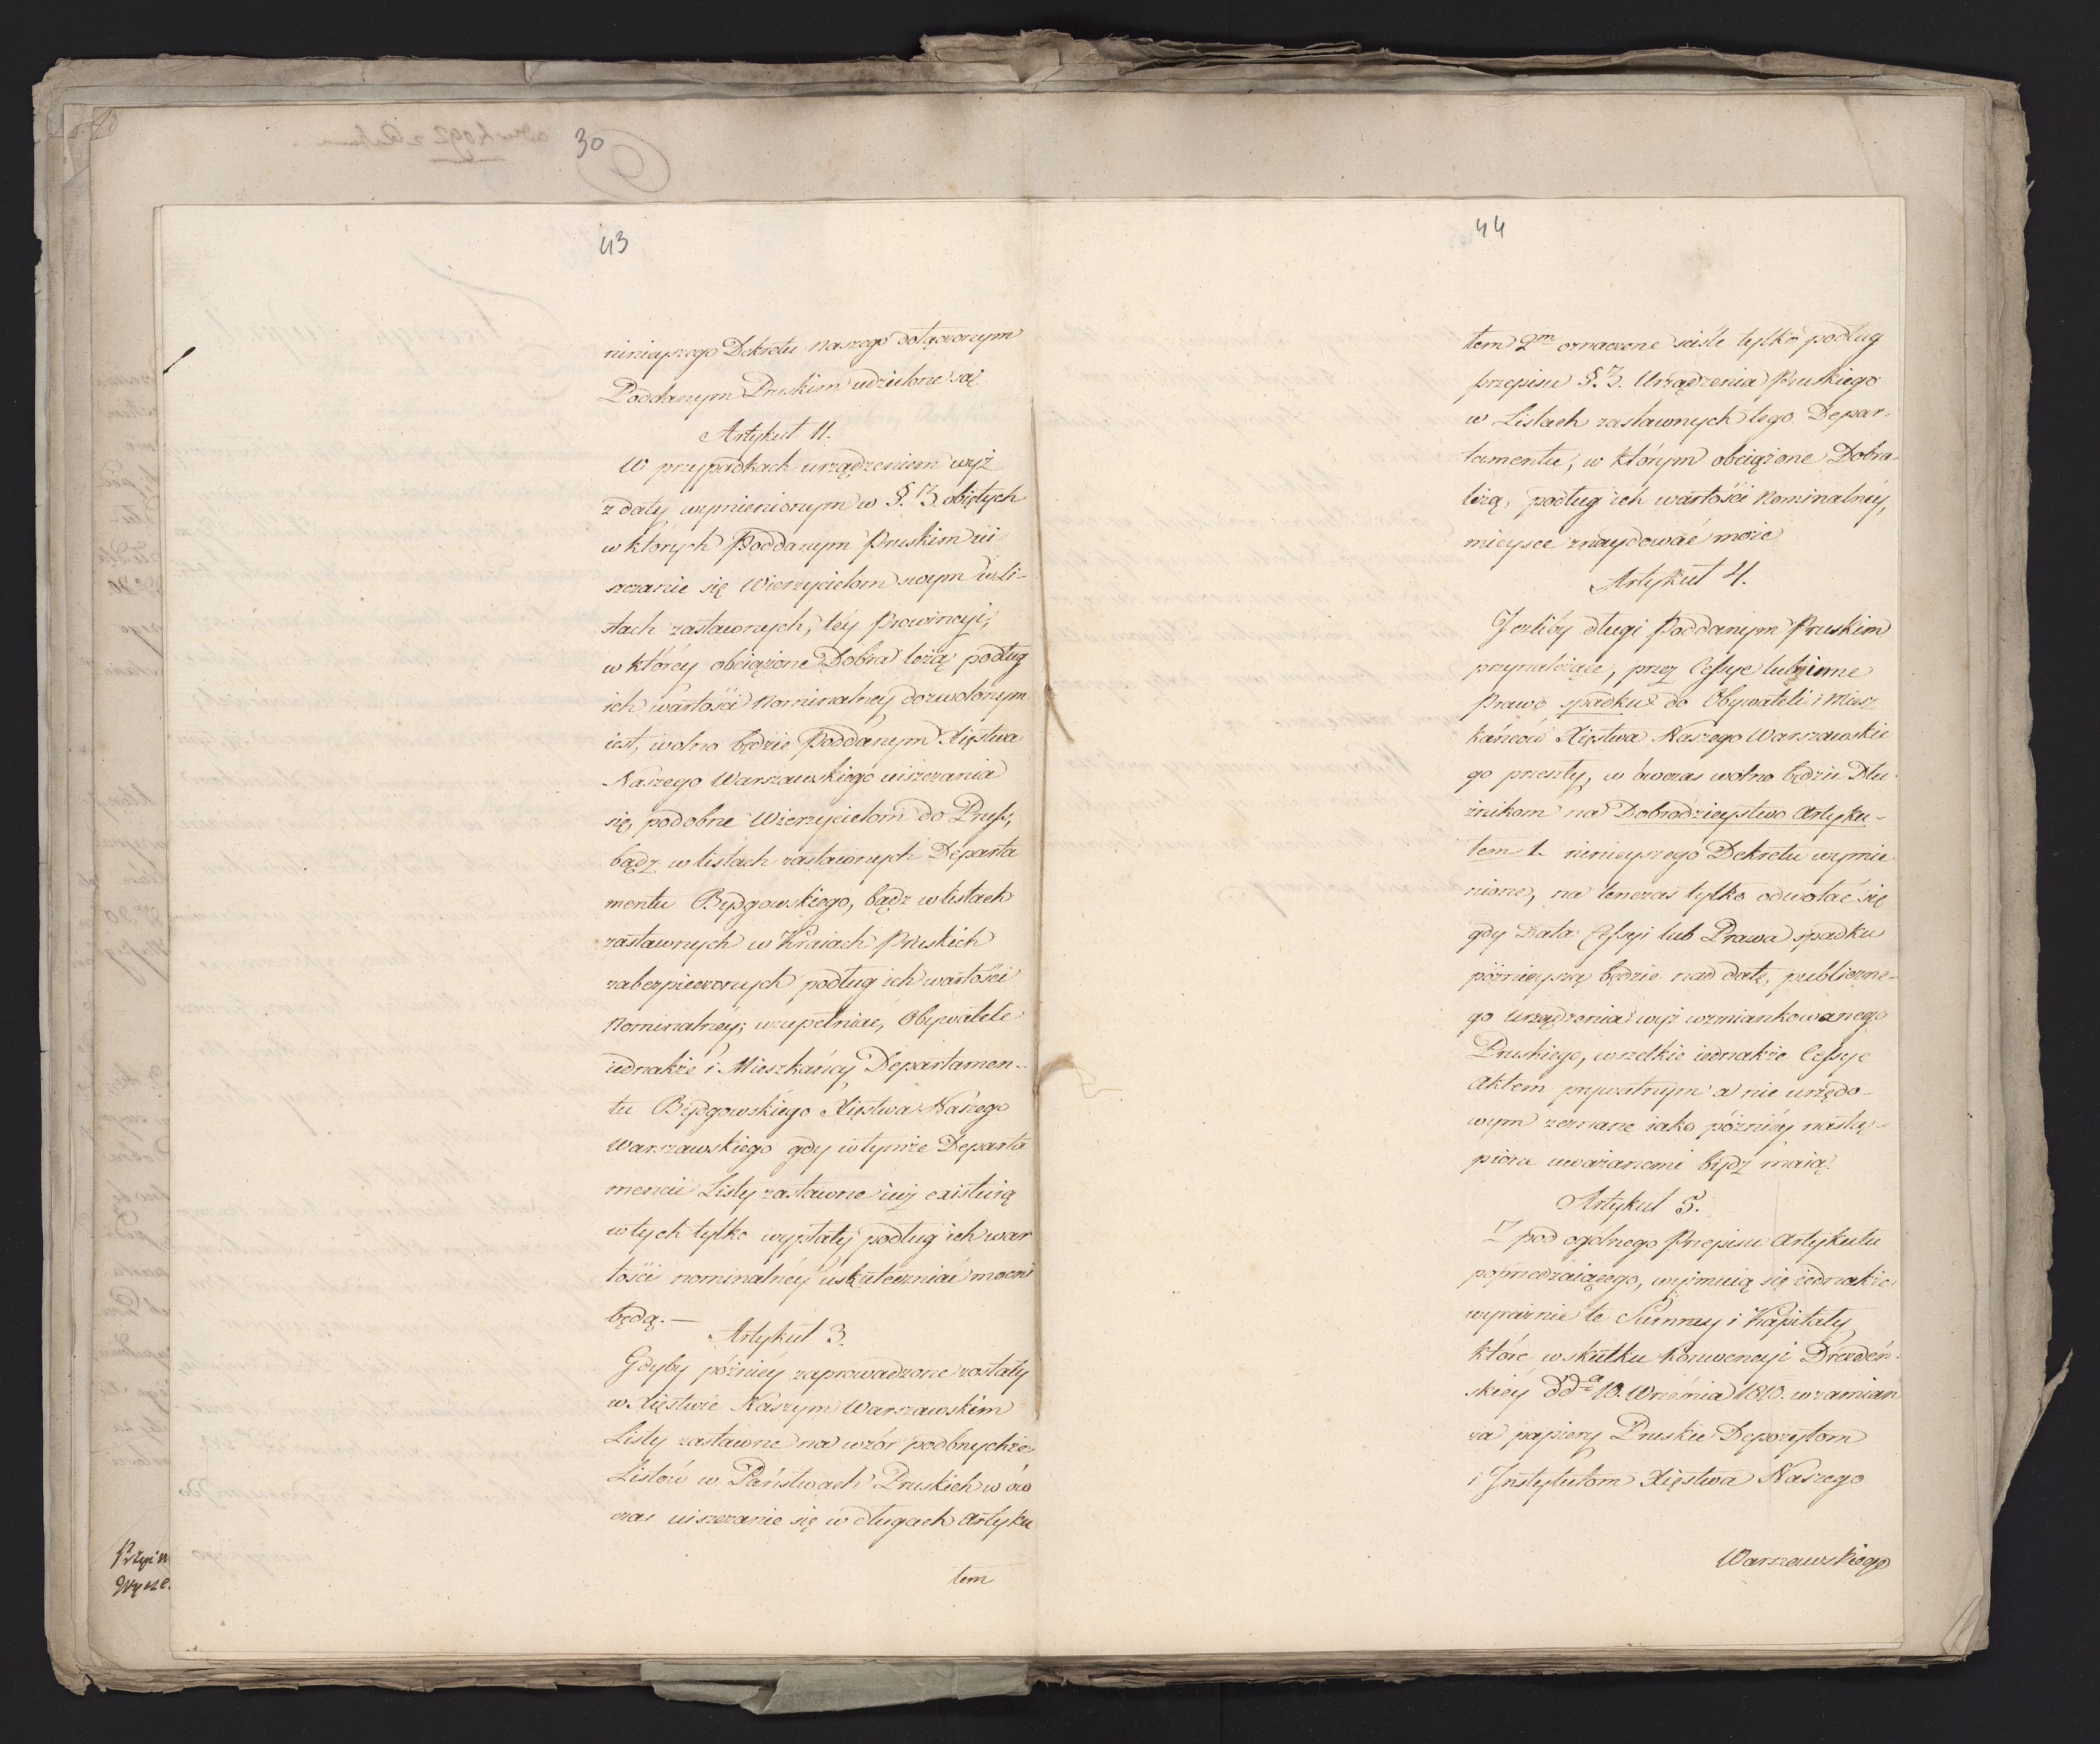 30
43
niniejszego Dekretu naszego dołączonym
Poddanym Pruskim udzielone są.
Artykuł 11.
W przypadkach urządzeniem wyż
z daty wymienionym w §. 3. obiętych
w których Poddanym Pruskim ui-
szczanie się Wierzycielom swym w li-
stach zastawnych, téy Prowincyi,
w któréy obciążone Dobra leżą podług
ich wartości nominalnéy dozwolonym
iest, wolno będzie Poddanym Xięstwa
Naszego Warszawskiego uiszczania
się, podobne Wierzycielom do Pruss,
bądz w listach zastawnych Departa
mentu Bydgowskiego, bądz w listach
zastawnych w Kraiach Pruskich
zabezpieczonych podług ich wartości
nominalnéy; uzupełniac, Obywatele
iednakże i Mieszkańcy Departamen-
tu Bydgowskiego Xięstwa Naszego
Warszawskiego gdy w tymże Departa
mencie Listy zastawne iuż existuią
w tych tylko wypłaty podług ich war
tości nominalnéy uskuteczniać mocni
będą. —
Artykuł 3.
Gdyby późniéy zaprowadzone zostały
w Xięstwie Naszym Warszawskim
Listy zastawne na wzór podbnychże
Listów w Państwach Pruskich w ów
czas uiszczanie się w długach Artyku
tem
44
tem 2m oznaczone ściśle tylko podług
przepisu §. 3. Urządzenia Pruskiego
w Listach zastawnych tego Depar-
tamentu, w którym obciążone Dobra
leżą, podług ich wartości nominalnéy,
mieysce znaydować może
Artykuł 4.
Jeżliby długi Poddanym Pruskim
przynależące, przez Cessye lub inne
Prawo spadku do Obywateli i Miesz
kańców Xięstwa Naszego Warszawskie
go przeszły, w ówczas wolno będzie Dłu-
żnikom na Dobrodzieystwo Artyku-
łem 1. ninieyszego Dekretu wymie
nione, na tenczas tylko odwołać się
gdy Data Cessyi lub Prawa spadku
póżnieyszą będzie nad datę, publiczne-
go urządzenia wyż wzmiankowanego
Pruskiego, wszelkie iednakże Cessye
aktem prywatnym a nie urzędo-
wym zeznane iako póżniéy nastą-
pione uważanemi bydź maią.
Artykuł 5.
Z pod ogólnego Przepisu Artykułu
poprzedzaiącego, wyjmuią się iednakże
wyraźnie te Summy i Kapitały,
które w skutku Konwencyi Drezdeń-
skiéy dda 10. Września 1810. w zamian
za papiery Pruskie Depozytom
i Instytutom Xięstwa Naszego
Warszawskiego